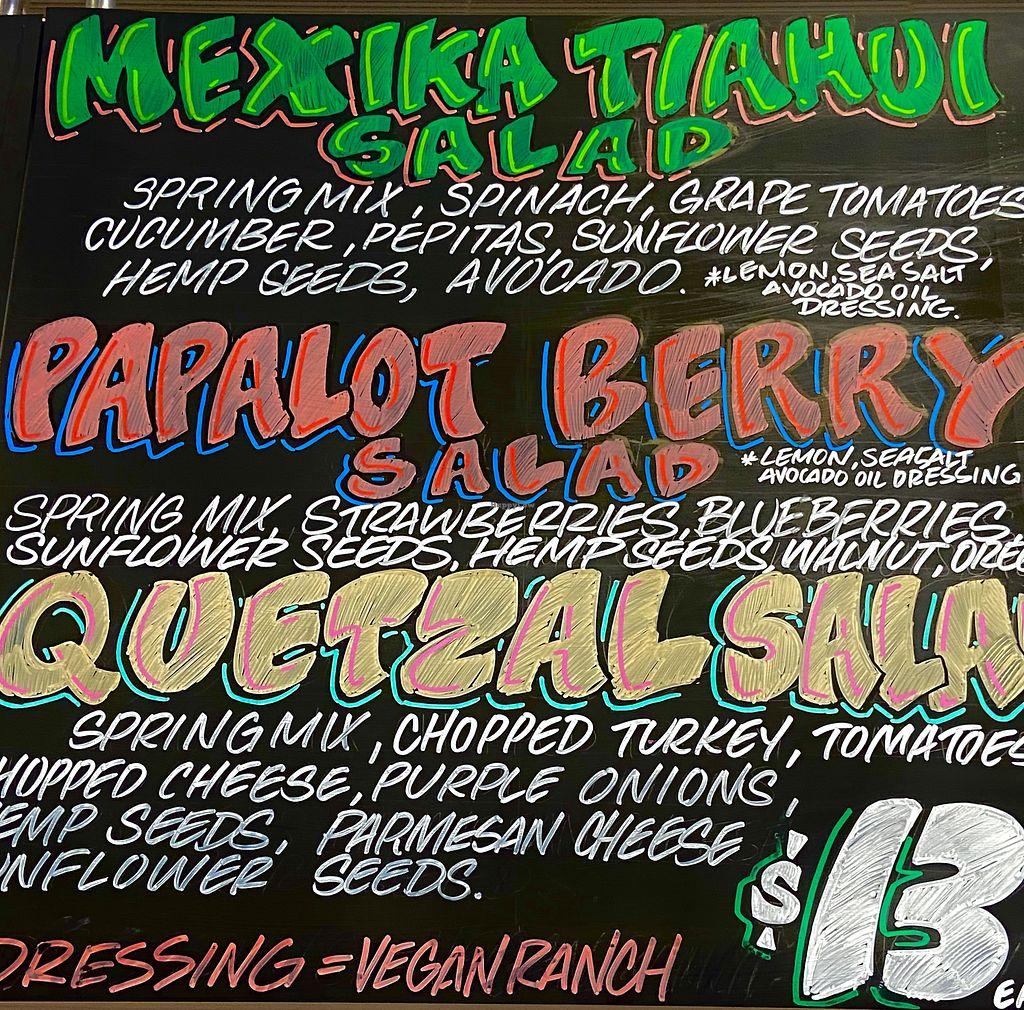 MEXIKA TIAHUI
SALAD
SPRING MIX, SPINACH, GRAPE TOMATOES
CUCUMBER, PEPITAS, SUNFLOWER SEEDS,
HEMP SEEDS, AVOCADO. *LEMON, SEA SALT
AVOCADO OIL
DRESSING.
PAPALOT BERRY
SALAD
*LEMON, SEA SALT
AVOCADO OIL DRESSING
SPRING MIX, STRAWBERRIES, BLUEBERRIES,
SUNFLOWER SEEDS, HEMP SEEDS, WALNUT,
QUETZAL SALA
SPRING MIX, CHOPPED TURKEY, TOMATOES
HOPPED CHEESE, PURPLE ONIONS,
EMP SEEDS, PARMESAN CHEESE
NFLOWER SEEDS.
$13
DRESSING = VEGAN RANCH